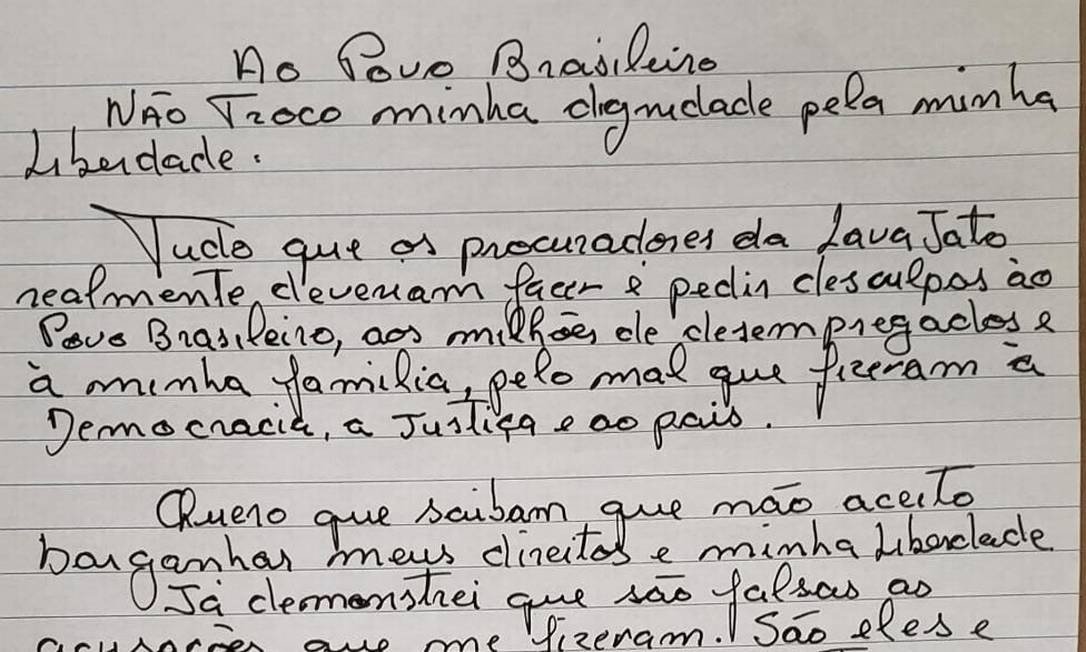 Ao Povo Brasileiro
NÃO Troco minha dignidade pela minha
Liberdade.
Tudo que os procuradores da Lava Jato
realmente deveriam fazer é pedir desculpas ào
Povo Brasileiro, aos milhões de desempregados e
à minha familia, pelo mal que fizeram à
Democracia, a Justiça e ao pais.
Quero que saibam que não aceito
barganhar meus direitos e minha Liberdade.
Já demonstrei que são falsas as
acusações que me fizeram. São eles e